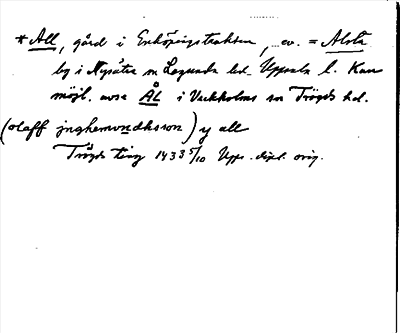 * All, gård i Enköpingstrakten, ev. = Alsta
by i Nysätra sn Lagunda hd. Uppsala l. Kan
möjl. avse ÅL i Vackholms sn Trögds hd.
(olaff jnghemundhsson) y all
Trögds ting 1433 5/10 Upps. dipl. orig.